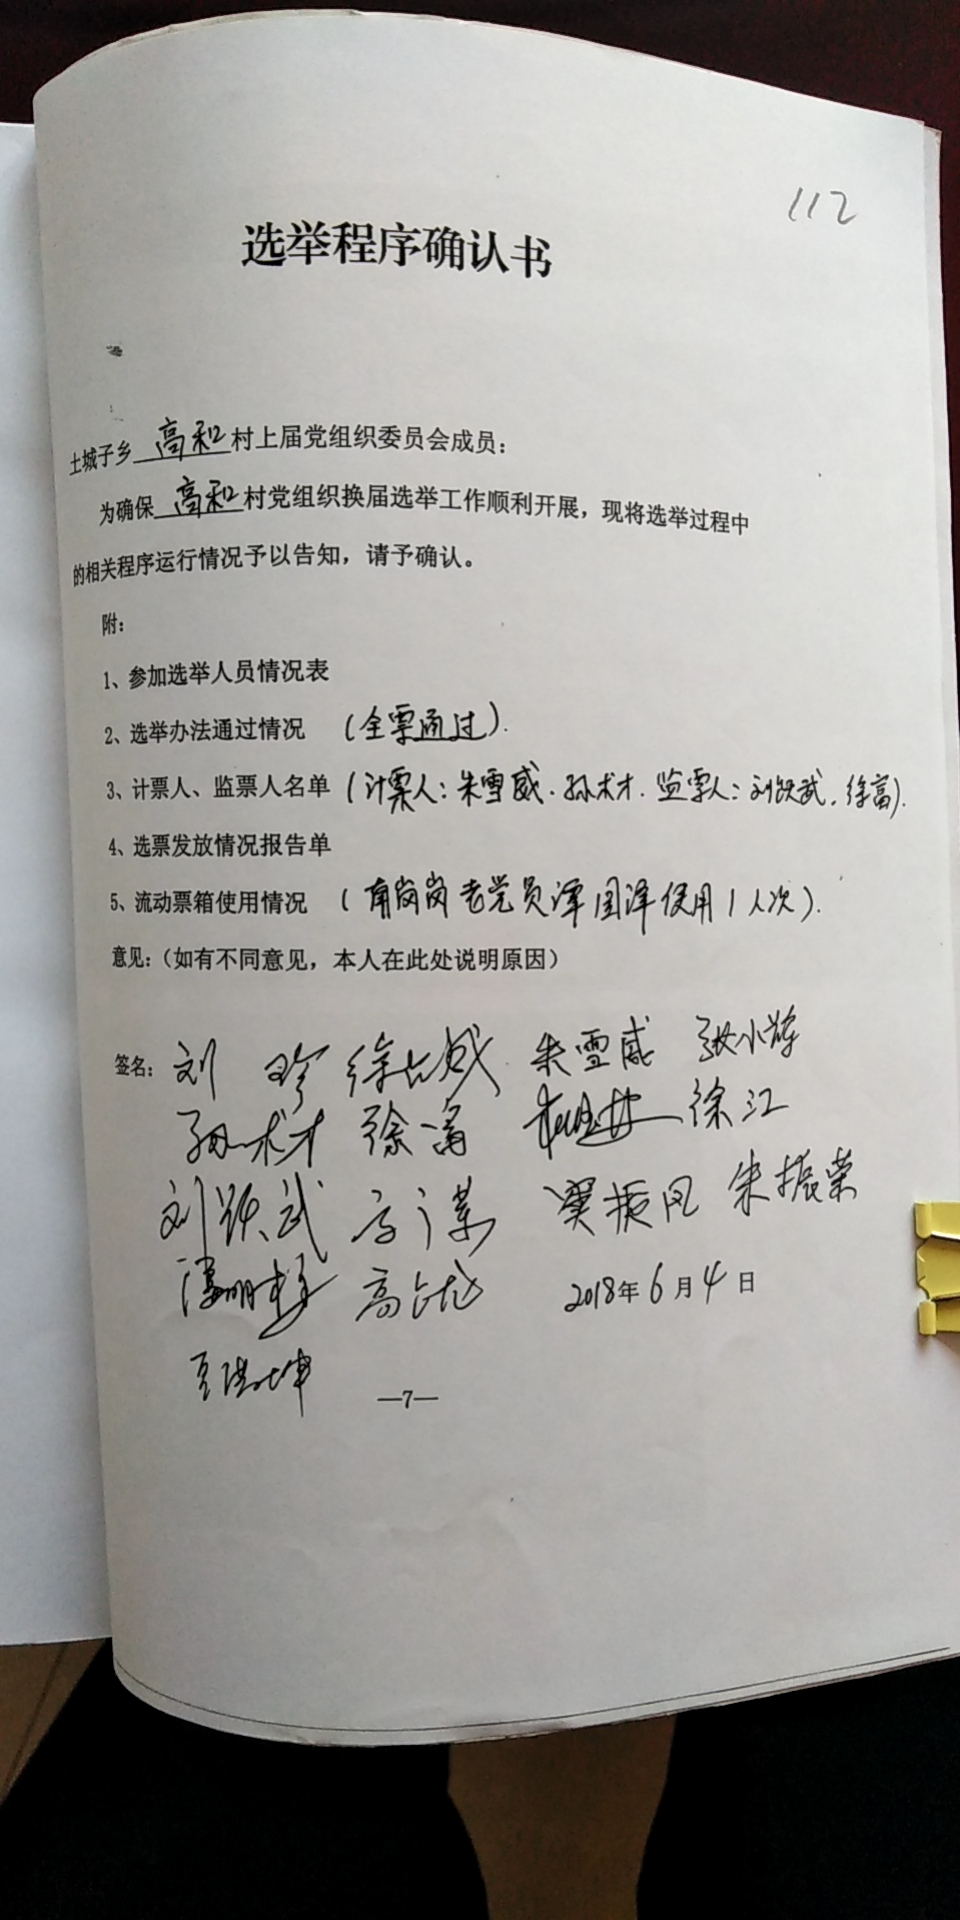 112
选举程序确认书
土城子乡高和村上届党组织委员会成员：
为确保高和村党组织换届选举工作顺利开展，现将选举过程中
的相关程序运行情况予以告知，请予确认。
附：
1、参加选举人员情况表
2、选举办法通过情况 （全票通过）.
3、计票人、监票人名单（计票人：朱雪威.孙术才.监票人：刘跃武.徐富).
4、选票发放情况报告单
5、流动票箱使用情况 （有岗岗老党员谭国泽使用1人次）.
意见：（如有不同意见，本人在此处说明原因）
签名：刘 珍 徐占成 朱雪威 张小辉
孙术才 徐富 徐江
刘跃武 窦振凤 朱振荣
高占龙 2018年6月4日
—7—